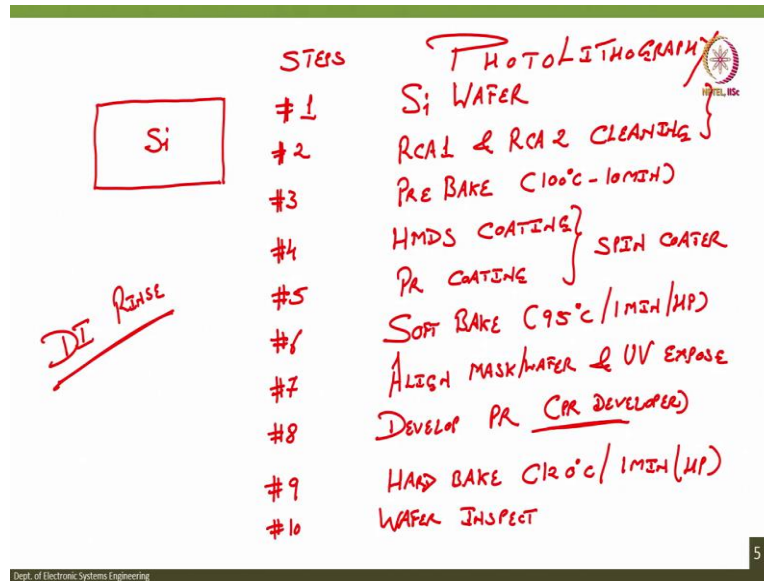 STEPS PHOTOLITHOGRAPHY
NPTEL, IISc
#1 Si WAFER
Si
#2 RCA1 & RCA 2 CLEANING
#3 PRE BAKE (100°C - 10MIN)
#4 HMDS COATING
SPIN COATER
#5 PR COATING
DI RINSE
#6 SOFT BAKE (95°C / 1MIN/HP)
#7 ALIGN MASK/WAFER & UV EXPOSE
#8 DEVELOP PR (PR DEVELOPER)
#9 HARD BAKE (120°C / 1MIN (HP)
#10 WAFER INSPECT
5
Dept. of Electronic Systems Engineering